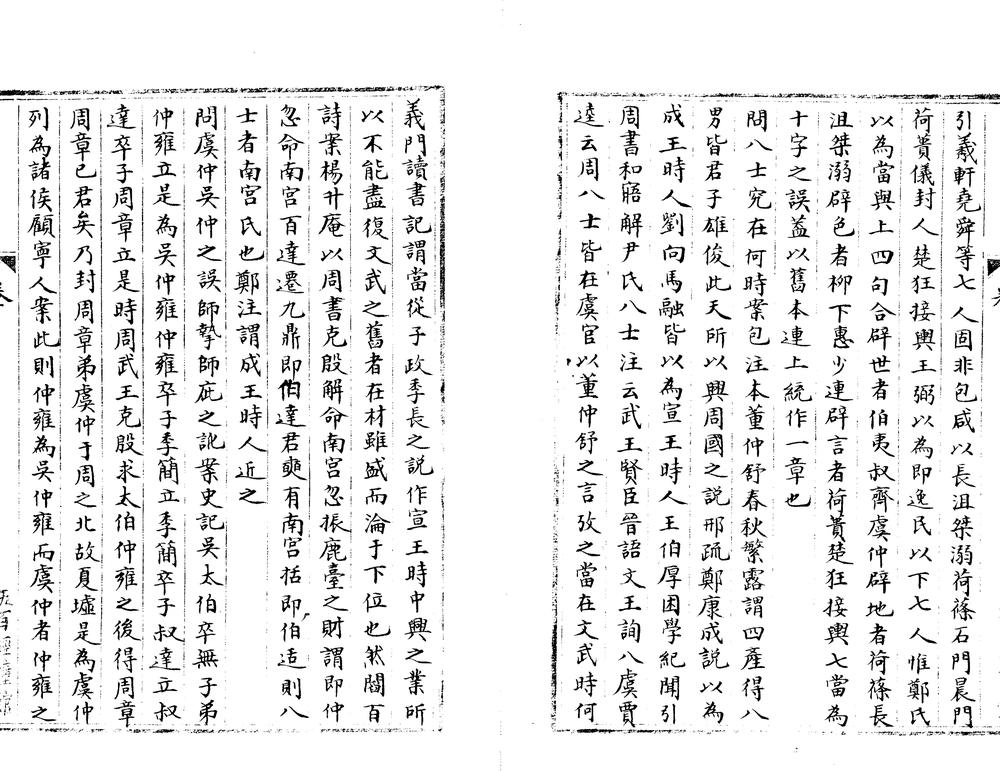 引羲軒堯舜等七人固非包咸以長沮桀溺荷蓧石門晨門
荷蕢儀封人楚狂接輿王弼以為即逸民以下七人惟鄭氏
以為當與上四句合辟世者伯夷叔齊虞仲辟地者荷蓧長
沮桀溺辟色者柳下惠少連辟言者荷蕢楚狂接輿七當為
十字之誤葢以舊本連上統作一章也
問八士究在何時案包注本董仲舒春秋繁露謂四產得八
男皆君子雄俊此天所以興周國之說邢疏鄭康成說以為
成王時人劉向馬融皆以為宣王時人王伯厚困學紀聞引
周書和寤解尹氏八士注云武王賢臣晉語文王詢八虞賈
逵云周八士皆在虞官以董仲舒之言攷之當在文武時何
義門讀書記謂當從子政季長之説作宣王時中興之業所
以不能盡復文武之舊者在材雖盛而淪于下位也然閻百
詩案楊升庵以周書克殷解命南宮忽振鹿臺之財謂即仲
忽命南宮百達遷九鼎即伯達君奭有南宮括即伯适則八
士者南宮氏也鄭注謂成王時人近之
問虞仲吳仲之誤師摯師庇之訛案史記吳太伯卒無子弟
仲雍立是為吳仲雍仲雍卒子季簡立季簡卒子叔達立叔
達卒子周章立是時周武王克殷求太伯仲雍之後得周章
周章已君矣乃封周章弟虞仲于周之北故夏墟是為虞仲
列為諸侯顧寧人案此則仲雍為吳仲雍而虞仲者仲雍之